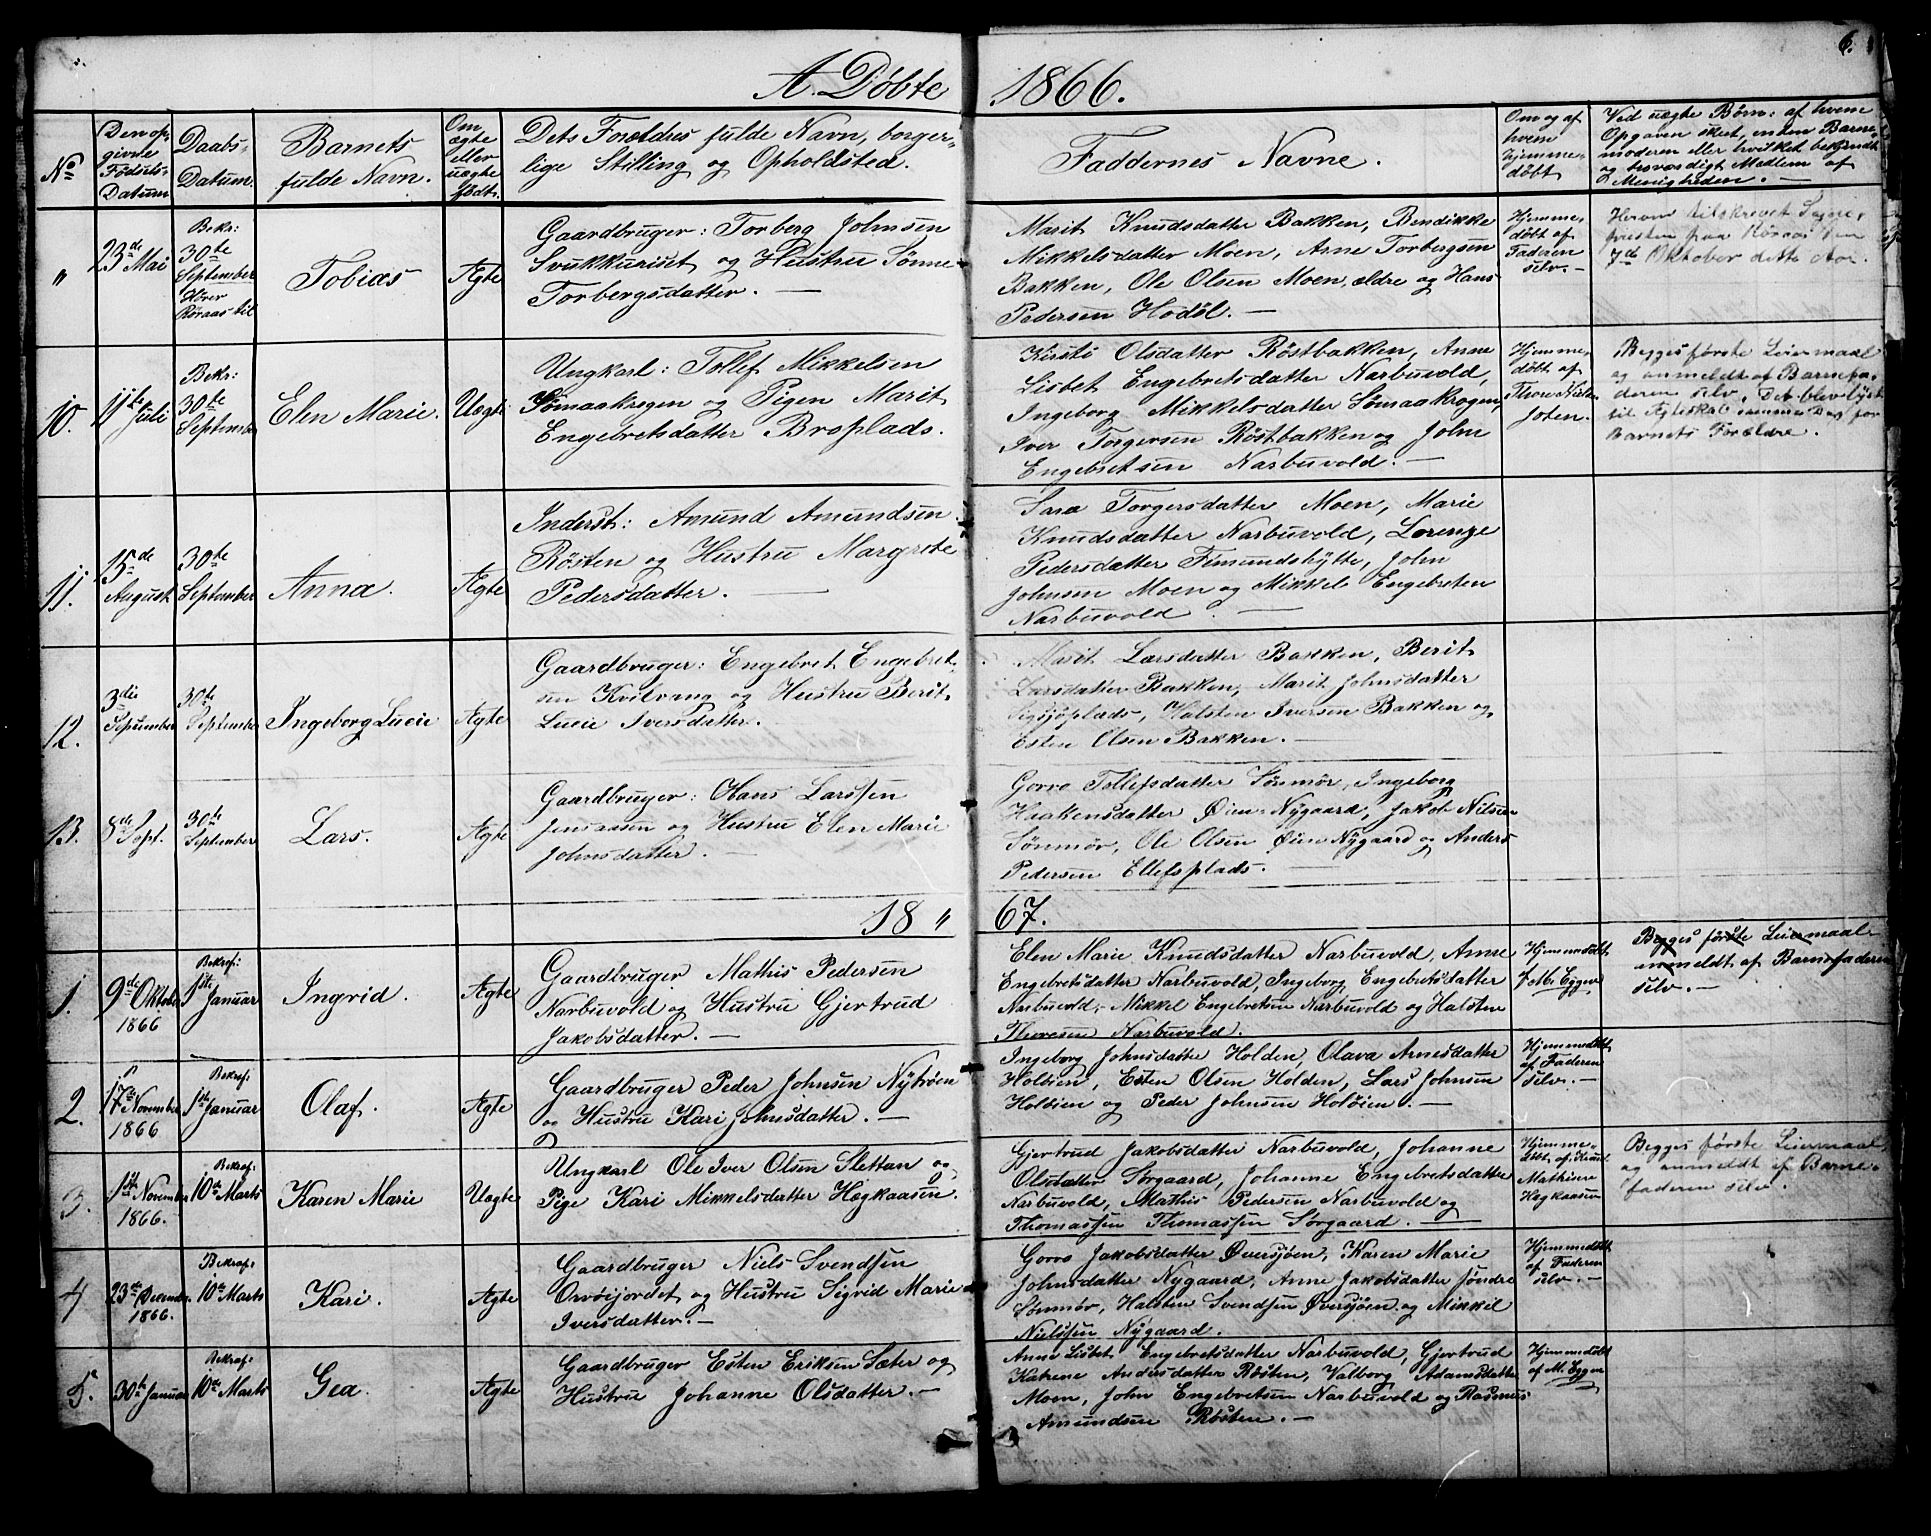 A. Døbte 1866.
6.
No
Den op-
givne
Fødsels-
Datum
Daabs-
Datum.
Barnets
fulde Navn.
Om
ægte
eller
uægte
født.
Dets Forældres fulde Navn, borger-
lige Stilling og Opholdsted.
Faddernes Navne.
Om og af
hvem
hjemme-
døbt
Ved uægte Børn: af hvem
Opgaven skeet, enten Barne-
moderen eller hvilket bekjendt
og troværdigt Medlem af
Menigheden. —
"
23de Mai
Bekr:
30te
September
Hører
Røraas til
Tobias
Ægte
Gaardbruger: Torberg Johnsen
Svukkuriset og Hustru Sønne
Torbergsdatter. —
Marit Knudsdatter Bakken, Bendikke
Mikkelsdatter Moen, Arne Torbergsen
Bakken, Ole Olsen Moen, ældre og Hans
Pedersen Hodøl. —
Hjemme-
døbt af
Faderen
selv. —
Herom tilskrevet Sogne-
præsten paa Røraas den
7de Oktober dette Aar.
10.
11te Juli
Bekr:
30te
September
Elen Marie.
Uægte
Ungkarl: Tollef Mikkelsen
Sømaakrogen og Pigen Marit
Engebretsdatter Broplads.
Kirsti Olsdatter Røstbakken, Anne
Lisbet Engebretsdatter Narbuvold,
Ingeborg Mikkelsdatter Sømaakrogen,
Iver Torgersen Røstbakken og John
Engebretsen Narbuvold. —
Hjemme-
døbt af
Thore
Joten.
Begges første Leiermaal
og anmeldt af Barnefa-
deren selv. Det blev lyst
til Ægteskab samme Dag for
Barnets Forældre.
11.
15de
August
30te
September
Anna.
Ægte
Inderst: Amund Amundsen
Røsten og Hustru Margrete
Pedersdatter. —
Sara Torgersdatter Moen, Marie
Knudsdatter Narbuvold, Lorense
Pedersdatter Femundshytte, John
Johnsen Moen og Mikkel Engebreten
Narbuvold. —
12.
3die
September
30te
September
Ingeborg Lucie
Ægte
Gaardbruger: Engebret Engebret-
sen Kvilvang og Hustru Berit
Lucie Iversdatter.
Marit Larsdatter Bakken, Berit
Larsdatter Bakken, Marit Johnsdatter
Sigsjøplads, Halsten Iversen Bakken og
Esten Olsen Bakken. —
13.
8de Sept.
30te
September
Lars.
Ægte
Gaardbruger: Hans Larssen
Jensaasen og Hustru Elen Marie
Johnsdatter. —
Gorro Tollefsdatter Sønmør, Ingeborg
Haakensdatter Øien Nygaard, Jakob Nilsen
Sønmør, Ole Olsen Øien Nygaard og Anders
Pedersen Ellefsplads. —
18 " 67.
1.
9de Oktober
1866
Bekræf:
1ste
Januar
Ingrid.
Ægte
Gaardbruger Mathis Pedersen
Narbuvold og Hustru Gjertrud
Jakobsdatter. —
Elen Marie Knudsdatter Narbuvold, Anne
Engebretsdatter Narbuvold, Ingeborg Engebretsdatter
Narbuvold, Mikkel Engebretsen Narbuvold og Halsten
Thoresen Narbuvold.
Hjemmedøbt
af M. Eggen
Begges første Leiermaal
anmeldt af Barnefaderen
selv. —
2.
17de November
1866
Bekræf:
1ste Januar
Olaf.
Ægte
Gaardbruger Peder Johnsen Nytrøen
og Hustru Kari Johnsdatter. —
Ingeborg Johnsdatter Holden, Olava Arnesdatter
Holøien, Esten Olsen Holden, Lars Johnsen
Holøien og Peder Johnsen Holøien. —
Hjemmedøbt
af Faderen
selv. —
3.
1ste November
1866.
Bekræf:
10de Marts
Karen Marie
Uægte
Ungkarl Ole Iver Olsen Slettan og
Pige Kari Mikkelsdatter Hegkaasen.
Gjertrud Jakobsdatter Narbuvold, Johanne
Olsdatter Sørgaard, Johanne Engebretsdatter
Narbuvold, Mathis Pedersen Narbuvold og
Thomassen Thomassen Sørgaard. —
Hjemme-
døbt af
Mathisen
Hegkaasen
Begges første Leiermaal
og anmeldt af Barne-
faderen selv.
4
23de December
1866.
Bekræf:
10de Marts
Kari.
Ægte
Gaardbruger Niels Svendsen
Orvöijordet og Hustru Sigrid Marie
Iversdatter. —
Gorro Jakobsdatter Øversjøen, Karen Marie
Johnsdatter Nygaard, Anne Jakobsdatter Søndre
Sønmør, Halsten Svendsen Øversjøen og Mikkel
Nielssen Nygaard.
Hjemmedøbt
af Faderen
selv. —
5.
30te Januar
Bekræf:
10de Marts
Gea.
Ægte
Gaardbruger Esten Eriksen Sæter og
Hustru Johanne Olsdatter. —
Anne Lisbet Engebretsdatter Narbuvold, Gjertrud
Katrene Andersdatter Røsten, Valborg Adamsdatter
Moen, John Engebretsen Narbuvold og Rasmus
Amundsen Røsten. —
Hjemmedøbt
af M. Eggen